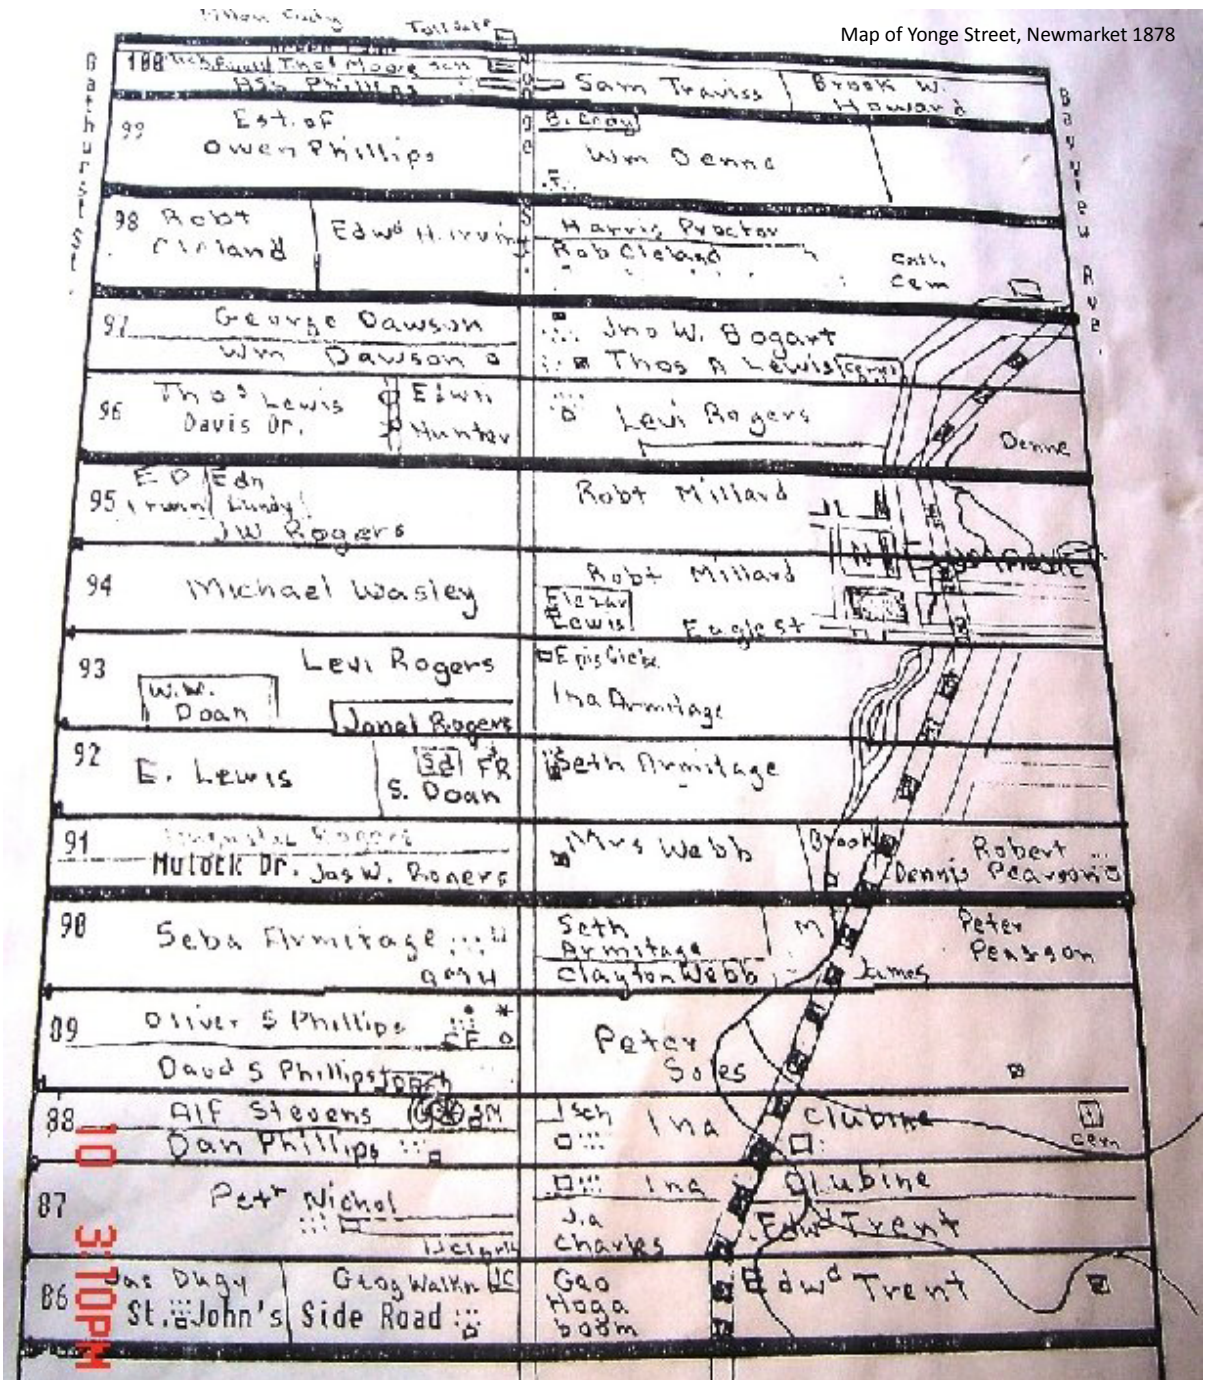 Map of Yonge Street, Newmarket 1878
Bathurst St.
Bayview Ave.
100
Thos Moore sch
Phillips
Sam Traviss
Brook W.
Howard
99
Est. of
Owen Phillips
Wm Denne
98
Robt
Cleland
Edwd H. Irvin
Harris Proctor
Rob Cleland
Cath.
Cem
97
George Dawson
Wm Dawson
Jno W. Bogart
Thos A Lewis
96
Thos Lewis
Davis Dr.
Edwn
Hunter
Levi Rogers
Denne
95
E D
Irwin
Edn
Lundy
JW Rogers
Robt Millard
94
Michael Wasley
Robt Millard
Lewis
Eagle St
93
Levi Rogers
W.W.
Doan
Rogers
Ina Armitage
92
E. Lewis
S. Doan
Seth Armitage
91
Rogers
Mulock Dr. Jas W. Rogers
Mrs Webb
Brook
Robert
Dennis Pearson
90
Seba Armitage
Seth
Armitage
Clayton Webb
M
James
Peter
Pearson
89
Oliver S Phillips
David S Phillips
Peter
Soles
88
Alf Stevens
SM
Dan Phillips
sch
Ina Clubine
cem
87
Petr Nichol
Ina Clubine
J.a
Charles
Edwd Trent
86
Jas Dugy
Geog Walkn
St. John's Side Road
Geo
Hoga
boom
Edwd Trent
10 3:10PM